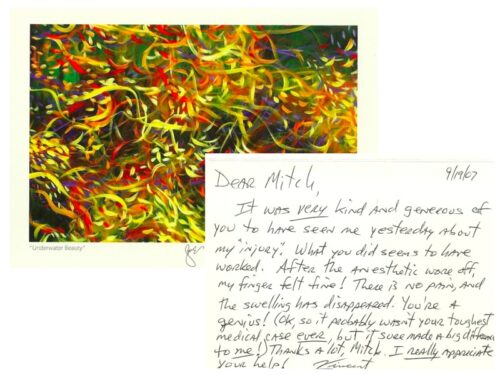 "Underwater Beauty"
9/19/07
DEAR MITCH,
IT WAS VERY KIND AND GENEROUS OF
YOU TO HAVE SEEN ME YESTERDAY ABOUT
MY "INJURY". WHAT YOU DID SEEMS TO HAVE
WORKED. AFTER THE ANESTHETIC WORE OFF,
MY FINGER FELT FINE! THERE IS NO PAIN, AND
THE SWELLING HAS DISAPPEARED. YOU'RE A
GENIUS! (OK, SO IT PROBABLY WASN'T YOUR TOUGHEST
MEDICAL CASE EVER, BUT IT SURE MADE A BIG DIFFERENCE
TO ME!) THANKS A LOT, MITCH. I REALLY APPRECIATE
YOUR HELP! Vincent